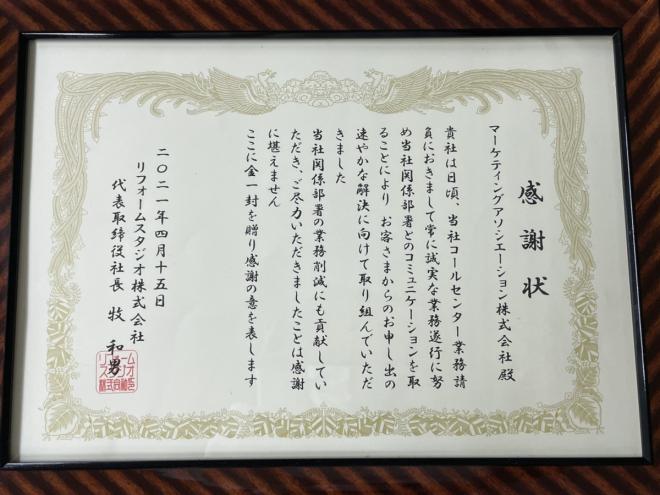 感謝状
マーケティングアソシエーション株式会社 殿
貴社は日頃、当社コールセンター業務請
負におきまして常に誠実な業務遂行に努
め当社関係部署とのコミュニケーションを取
ることにより お客さまからのお申し出の
速やかな解決に向けて取り組んでいただ
きました
当社関係部署の業務削減にも貢献してい
ただき、ご尽力いただきましたことは感謝
に堪えません
ここに金一封を贈り感謝の意を表します
二〇二一年四月十五日
リフォームスタジオ株式会社
代表取締役社長 牧 和男